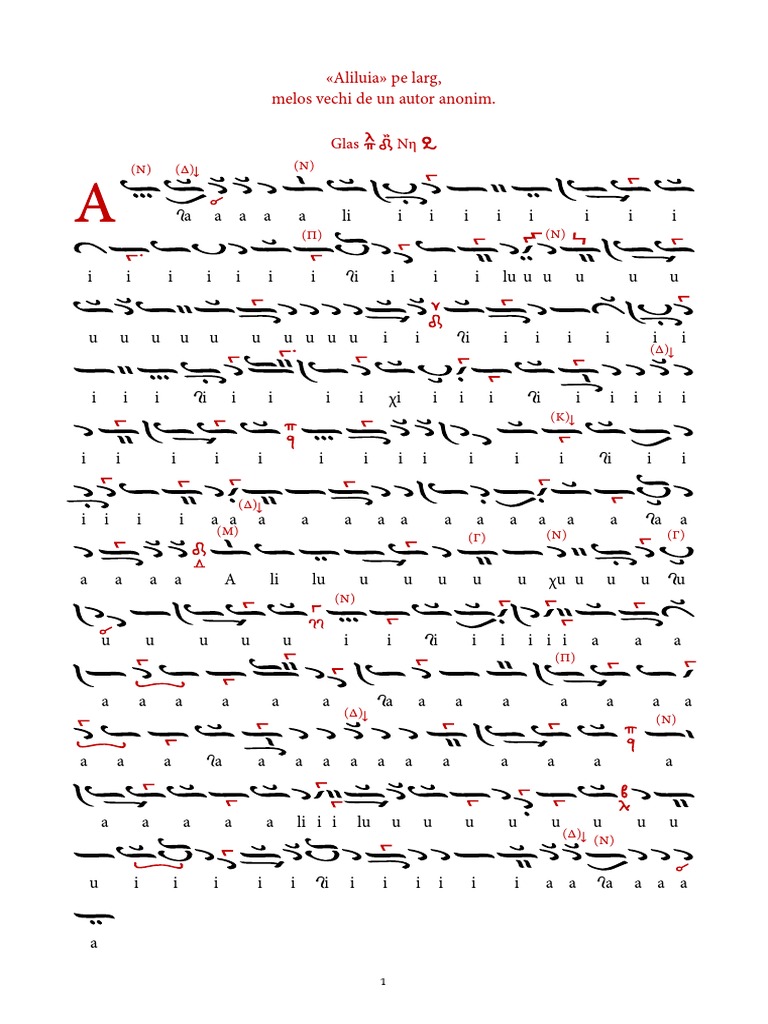 «Aliluia» pe larg,
melos vechi de un autor anonim.
Glas Νη
(Ν) (Δ) (Ν)
A
ʔa a a a a li i i i i i i i i
(Π) (Ν)
i i i i i i ʔi i i i lu u u u u u
u u u u u u u u u i i ʔi i i i i i i
(Δ)
i i i ʔi i i i i χi i i i ʔi i i i i i
(Κ)
i i i i i i i i i i i i ʔi i i
i i i i a a a a a a a a a a a a a ʔa a
(Δ)
(Μ) (Γ) (Ν) (Γ)
Δ
a a a a A li lu u u u u u χu u u u ʔu
(Ν)
u u u u u i i ʔi i i i i i a a a
(Π)
a a a a a a ʔa a a a a a a a
(Δ) (Ν)
a a a ʔa a a a a a a a a a a a
a a a a a li i i lu u u u u u u u u
(Δ) (Ν)
u i i i i i ʔi i i i i i i a a ʔa a a a
a
1